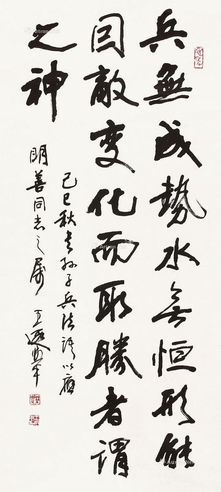 兵無成勢水無恒形能
因敵变化而取勝者謂
之神
己巳秋書孫子兵法語以應
明善同志之屬 王遐舉